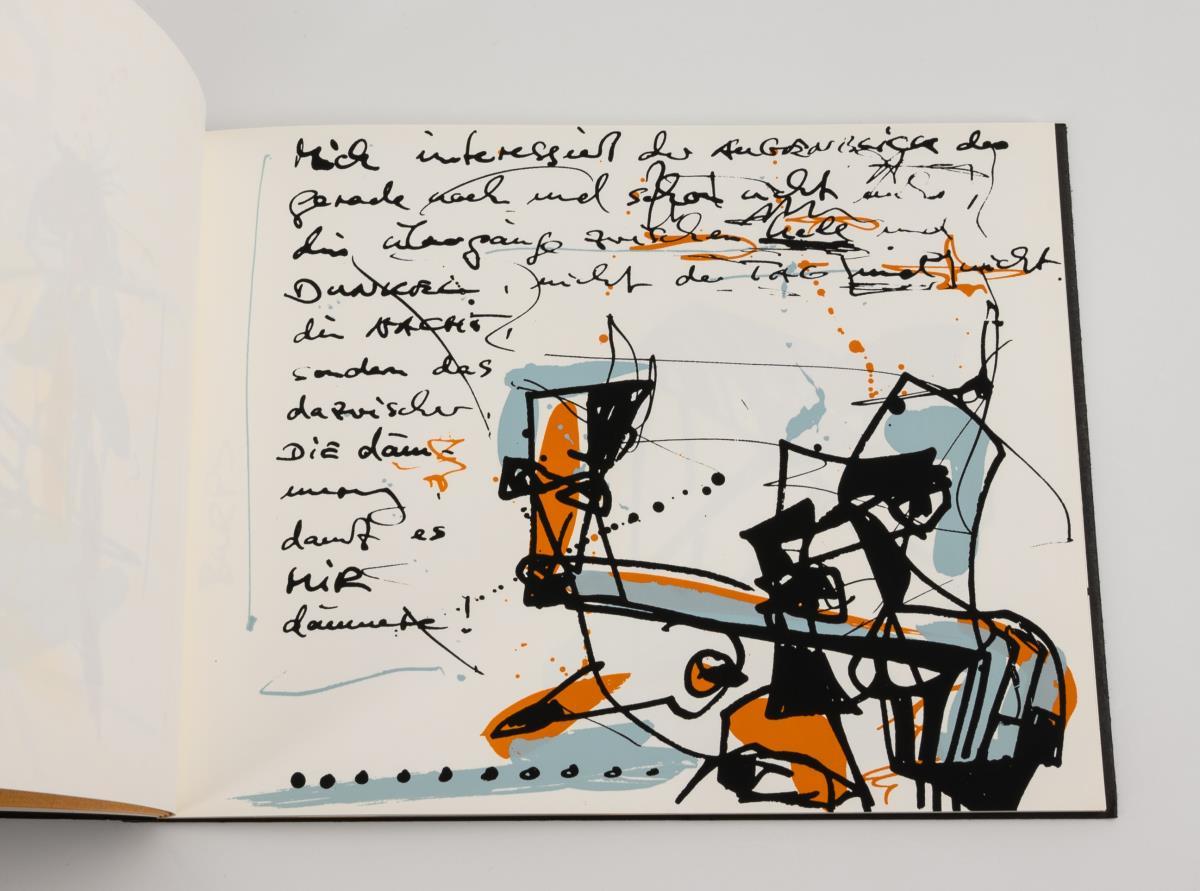 Mich interessiert der AUGENBLICK des
gerade noch und schon nicht mehr,
die Übergänge zwischen Helle und
DUNKEL, nicht der TAG und nicht
die NACHT,
sondern das
dazwischen.
DIE däm-
merung,
damit es
MIR
dämmere!